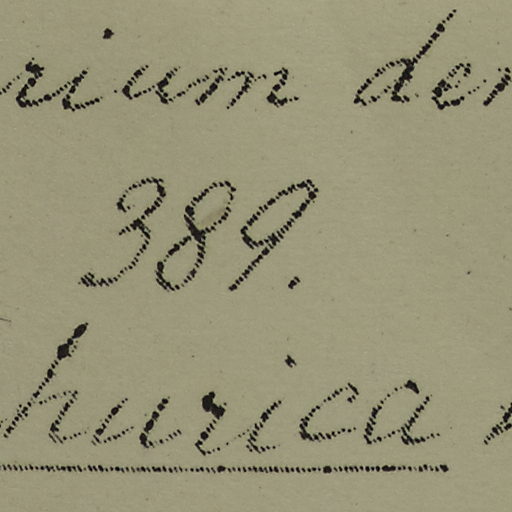 rium der
389.
hurica